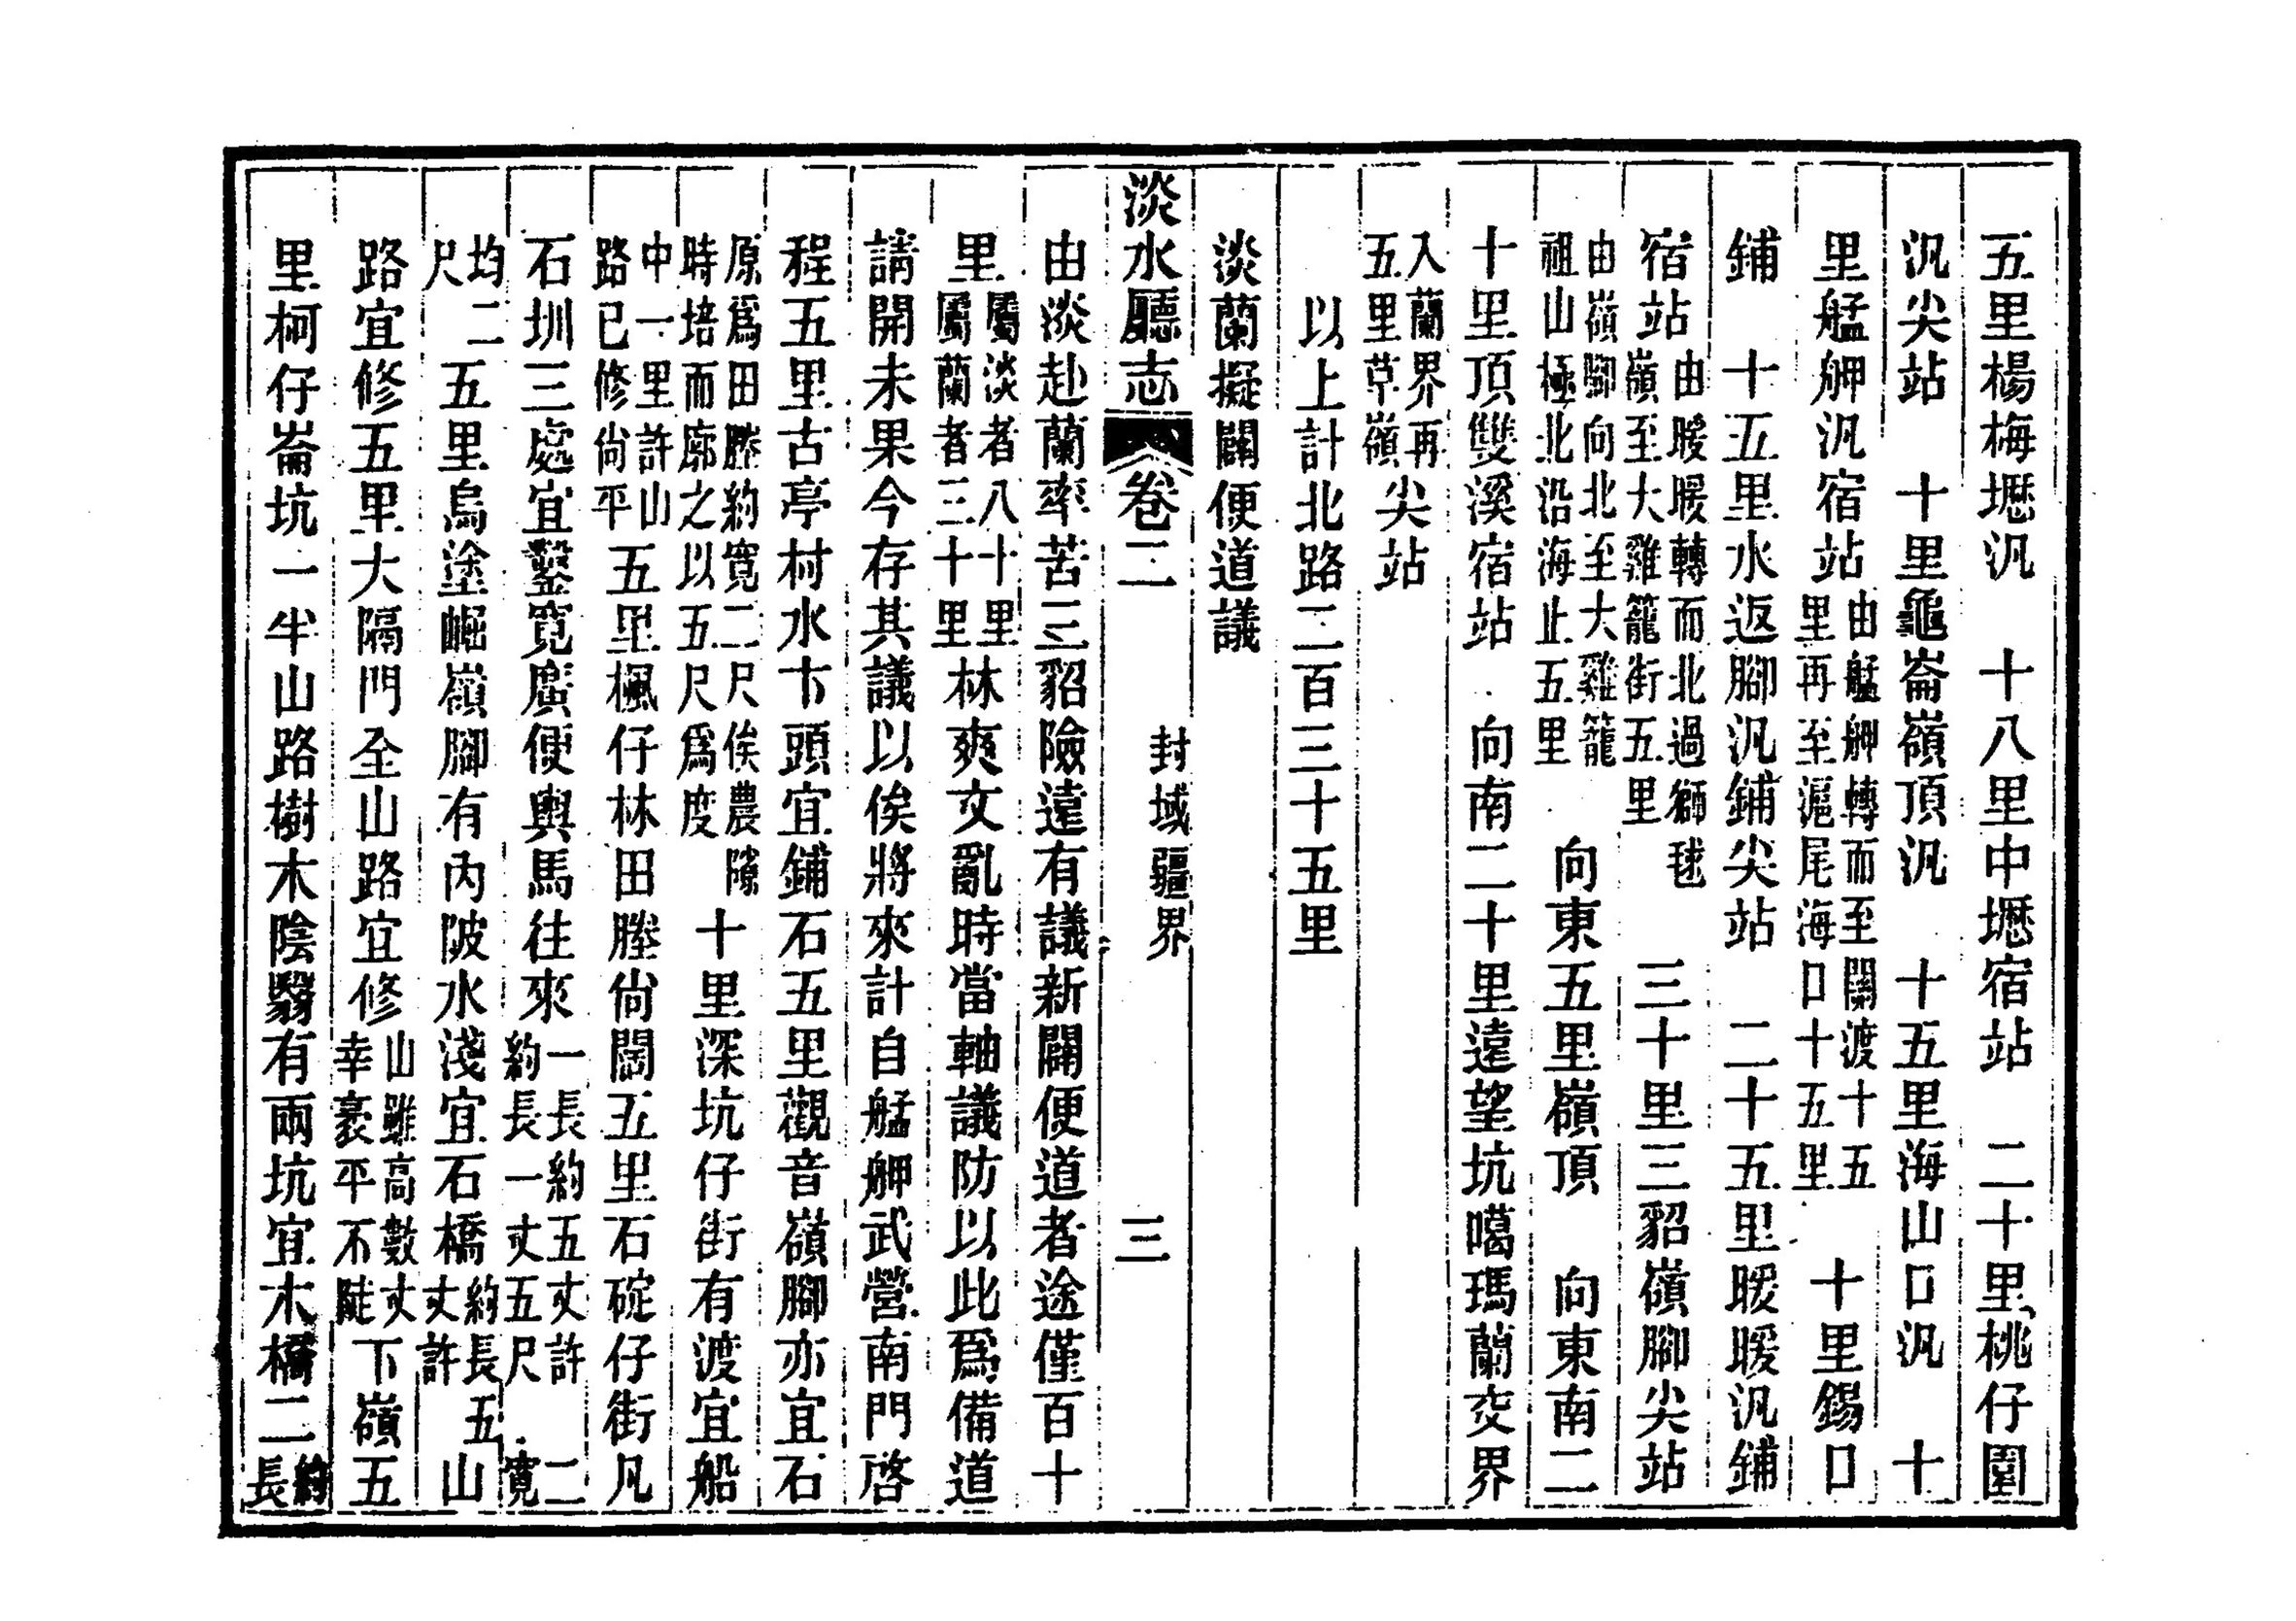 五里楊梅壢汛　十八里中壢宿站　二十里桃仔園
汛尖站　十里龜崙嶺頂汛　十五里海山口汛　十
里艋舺汛宿站由艋舺轉而至關渡十五里再至滬尾海口十五里　十里錫口
鋪　十五里水返腳汛鋪尖站　二十五里暖暖汛鋪
宿站由暖暖轉而北過獅毬嶺至大雞籠街五里　三十里三貂嶺腳尖站
由嶺腳向北至大雞籠祖山極北沿海止五里　向東五里嶺頂　向東南二
十里頂雙溪宿站　向南二十里遠望坑噶瑪蘭交界
入蘭界再五里草嶺尖站
以上計北路二百三十五里
淡蘭擬闢便道議
淡水廳志　卷二　封域　疆界　三
由淡赴蘭率苦三貂險遠有議新闢便道者途僅百十
里屬淡者八十里屬蘭者三十里林爽文亂時當軸議防以此爲備道
請開未果今存其議以俟將來計自艋舺武營南門啓
程五里古亭村水卞頭宜鋪石五里觀音嶺腳亦宜石
原爲田塍約寬二尺俟農隙時培而廓之以五尺爲度　十里深坑仔街有渡宜船
中一里許山路已修尙平五里楓仔林田塍尙闊五里石碇仔街凡
石圳三處宜鑿寬廣便輿馬往來一長約五丈許二約長一丈五尺寬
均二尺五里烏塗崛嶺腳有內陂水淺宜石橋約長五丈許山
路宜修五里大隔門全山路宜修山雖高數丈幸衺平不陡下嶺五
里柯仔崙坑一半山路樹木陰翳有兩坑宜木橋二約長